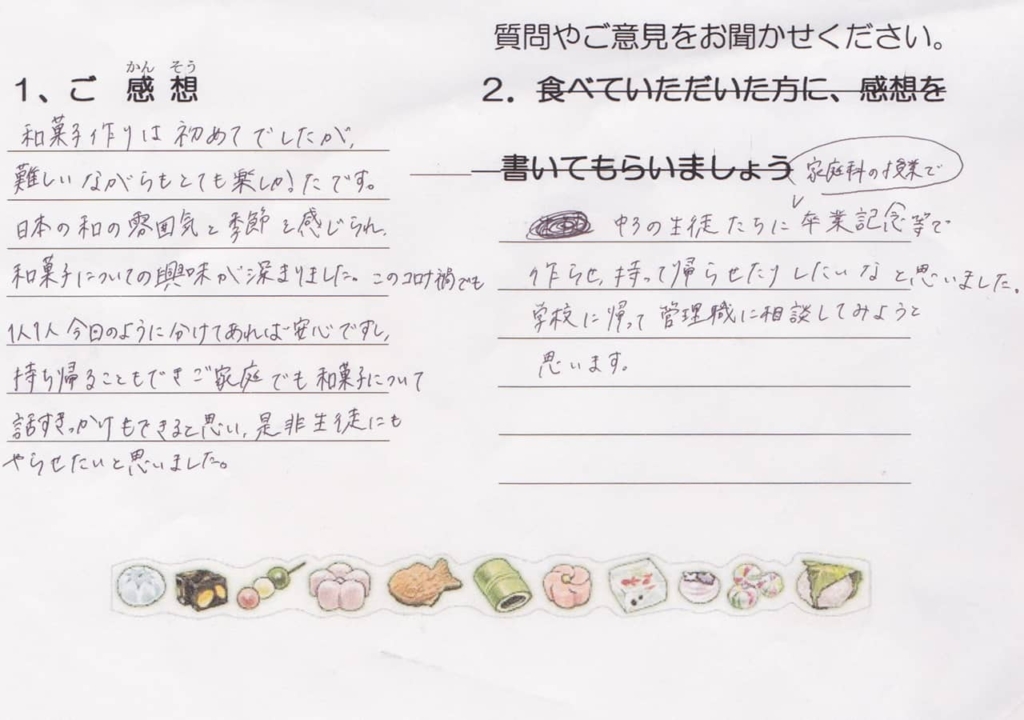 1、ご感想
かんそう
和菓子作りは初めてでしたが、
難しいながらもとても楽しかったです。
日本の和の雰囲気と季節を感じられ、
和菓子についての興味が深まりました。このコロナ禍でも
1人1人今日のように分けてあれば安心ですし、
持ち帰ることもできご家庭でも和菓子について
話すきっかけもできると思い、是非生徒にも
やらせたいと思いました。
質問やご意見をお聞かせください。
2．食べていただいた方に、感想を
書いてもらいましょう
家庭科の授業で
中3の生徒たちに卒業記念等で
作らせ、持って帰らせたりしたいなと思いました。
学校に帰って管理職に相談してみようと
思います。